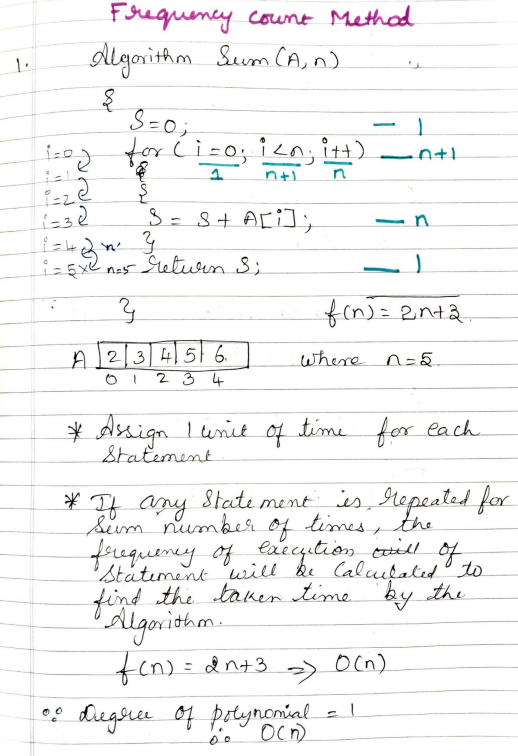 Frequency count Method
1. Algorithm Sum (A, n)
{
S=0; — 1
for ( i=0; i<n; i++) — n+1
1 n+1 n
i=0
i=1
{
i=2
i=3 S = S + A[i]; — n
i=4 'n' }
i=5x n=5 return S; — 1
} f(n) = 2n+3
A 2 3 4 5 6 where n=5
0 1 2 3 4
* Assign 1 unit of time for each
Statement
* If any Statement is repeated for
Sum number of times, the
frequency of execution of
Statement will be Calculated to
find the taken time by the
Algorithm.
f(n) = 2n+3 => O(n)
∵ Degree of polynomial = 1
∴ O(n)